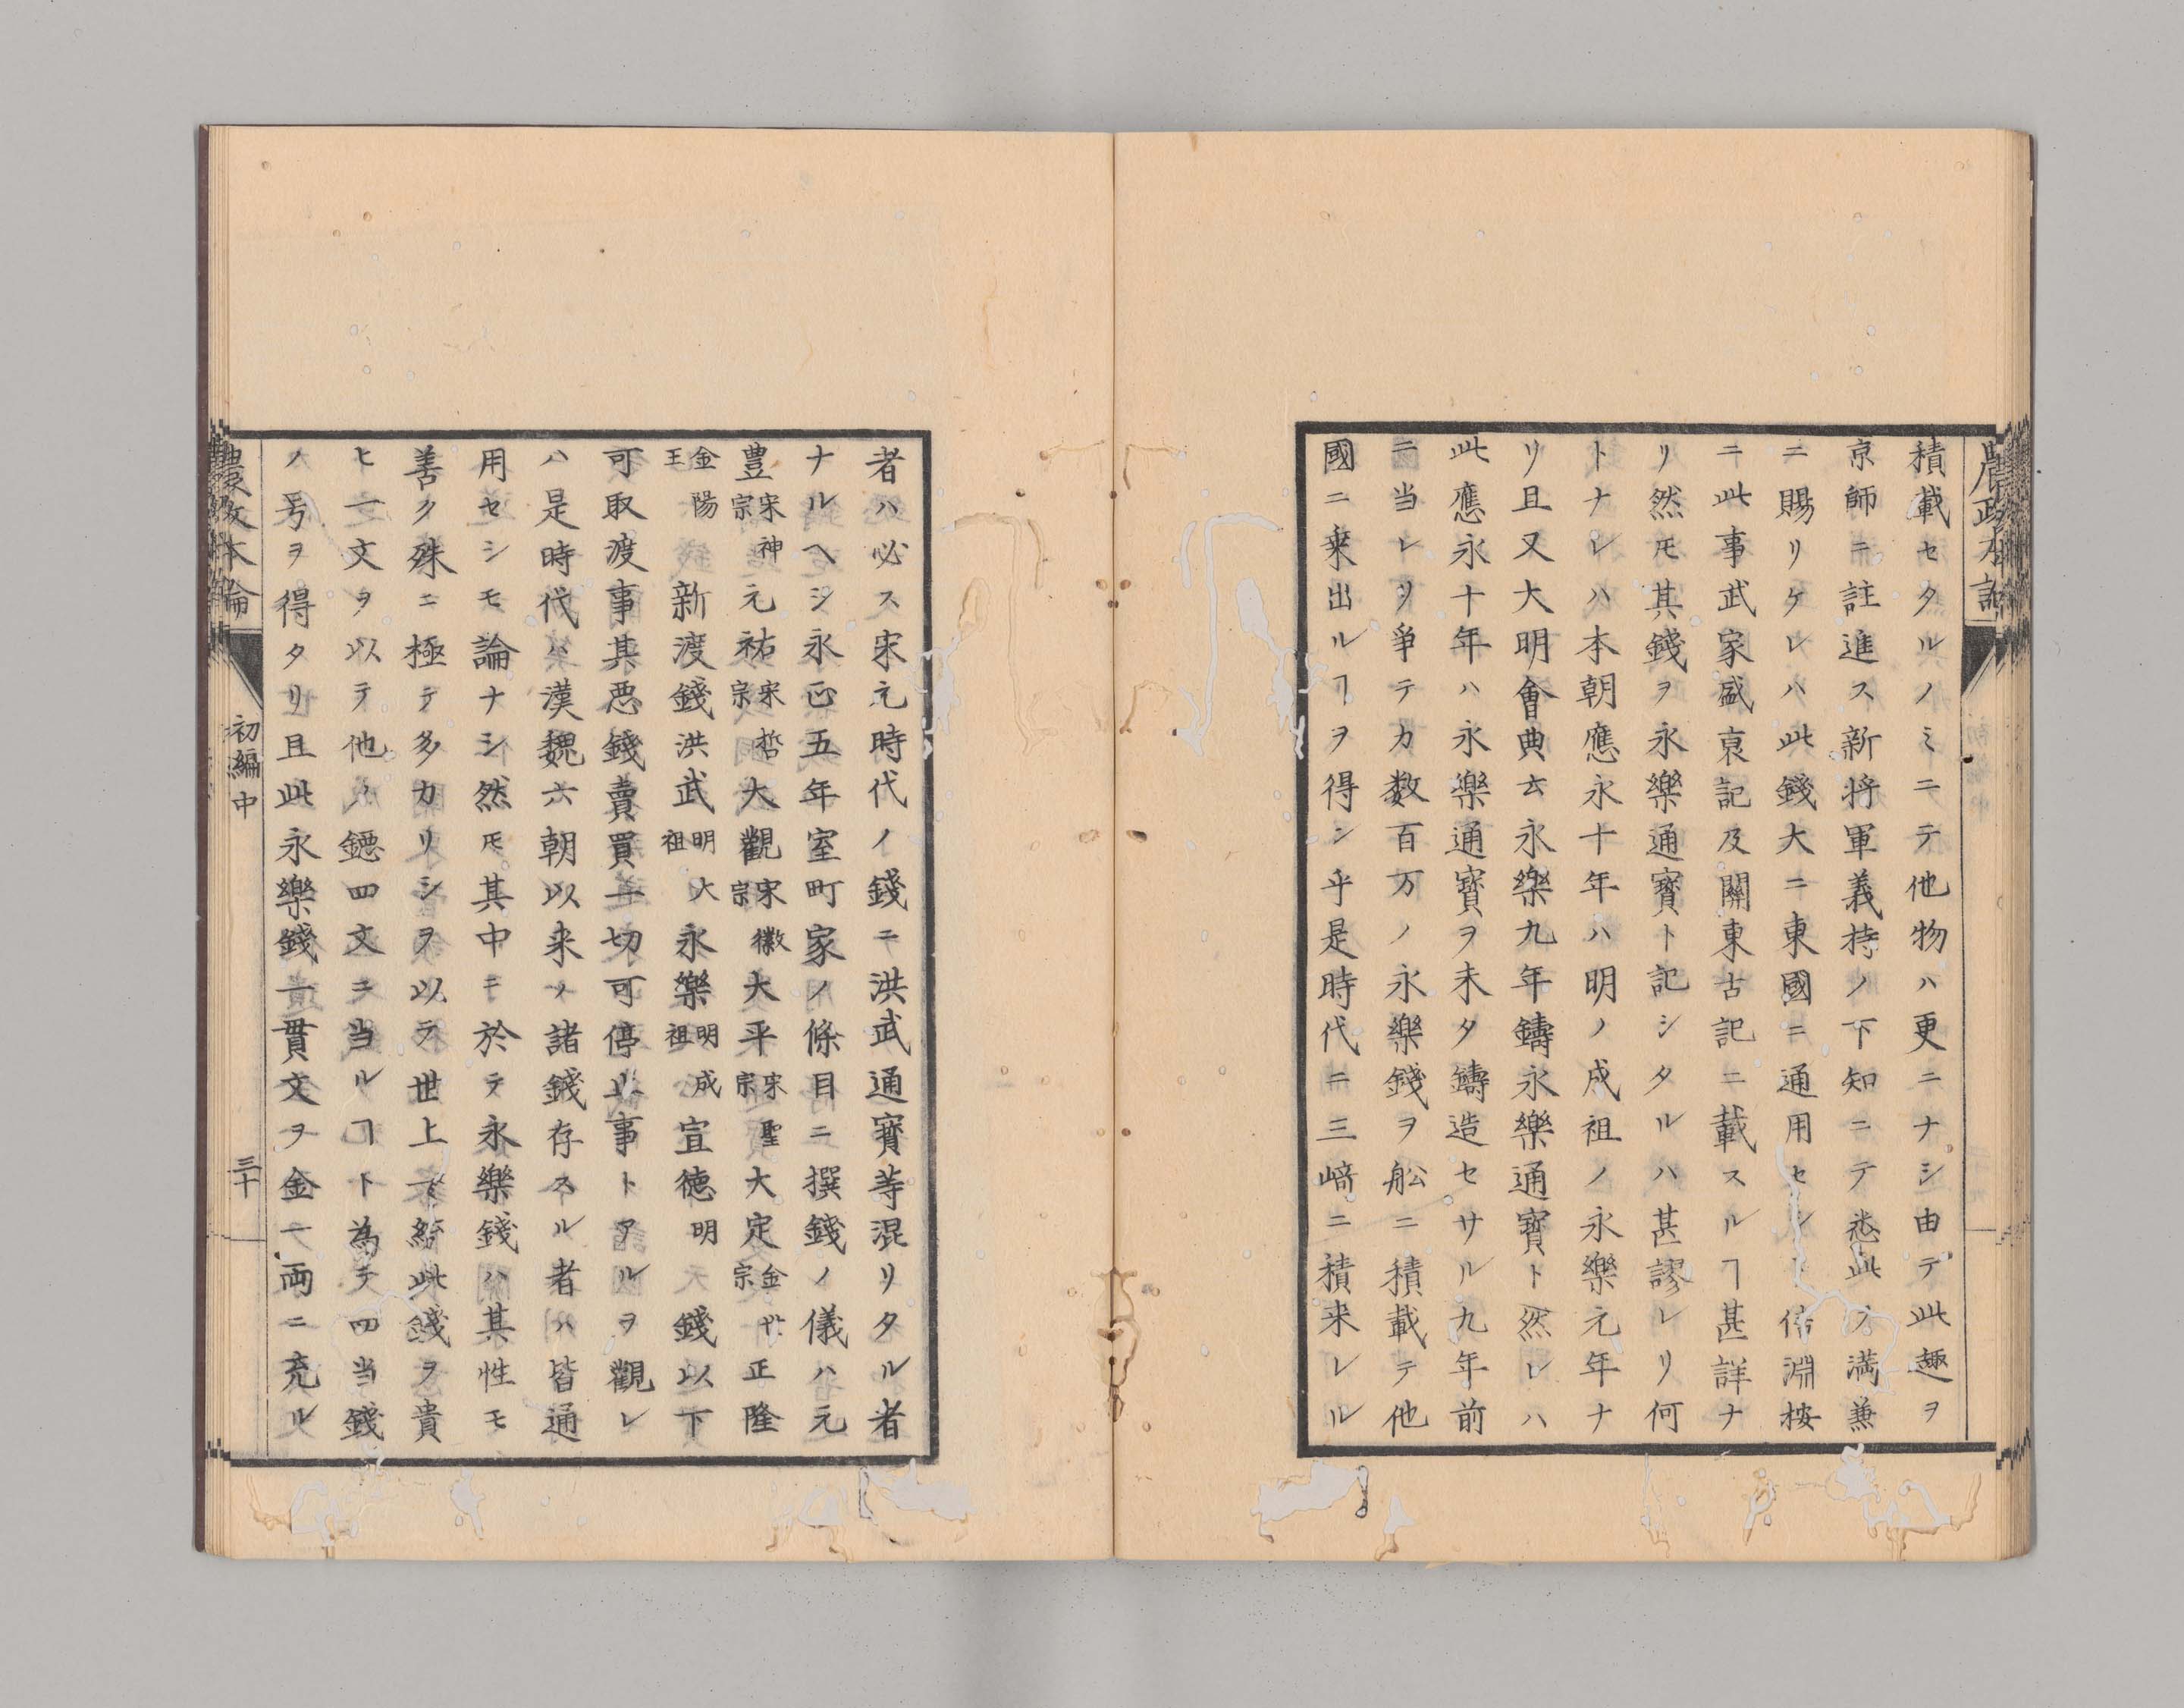 積載セタルノミニテ他物ハ更ニナシ由テ此趣ヲ
京師ニ註進ス新将軍義持ノ下知ニテ悉此ヲ満兼
ニ賜リケレハ此錢大ニ東國ニ通用セシ 信淵按
ニ此事武家盛衰記及關東古記ニ載スルヿ甚詳ナ
リ然𪜈其錢ヲ永樂通寳ト記シタルハ甚謬レリ何
トナレハ本朝應永十年ハ明ノ成祖ノ永樂元年ナ
リ且又大明會典云永樂九年鑄永樂通寳ト然レハ
此應永十年ハ永樂通寳ヲ未タ鑄造セサル九年前
ニ当レリ爭テカ数百万ノ永樂錢ヲ舩ニ積載テ他
國ニ乗出ルヿヲ得シ乎是時代ニ三﨑ニ積来レル
者ハ必ス宋元時代ノ錢ニ洪武通寳等混リタル者
ナルヘシ永正五年室町家ノ條目ニ撰錢ノ儀ハ元
豊宋神宗元祐宋哲宗大觀宋徽宗大平宋聖宗大定金世宗正隆
金陽王新渡錢洪武明大祖永樂明成祖宣徳明錢以下
可取渡事其悪錢賣買一切可停止事トアルヲ觀レ
ハ是時代ハ漢魏六朝以来ノ諸錢存スル者ハ皆通
用セシモ論ナシ然𪜈其中ニ於テ永樂錢ハ其性モ
善ク殊ニ極テ多カリシヲ以テ世上ミ䋖此錢ヲ貴
ヒ一文ヲ以テ他ノ鐚四文ニ当ルヿト為テ四当錢
ノ号ヲ得タリ且此永樂錢一貫文ヲ金一両ニ充ル
農政本論
初編 中
三十